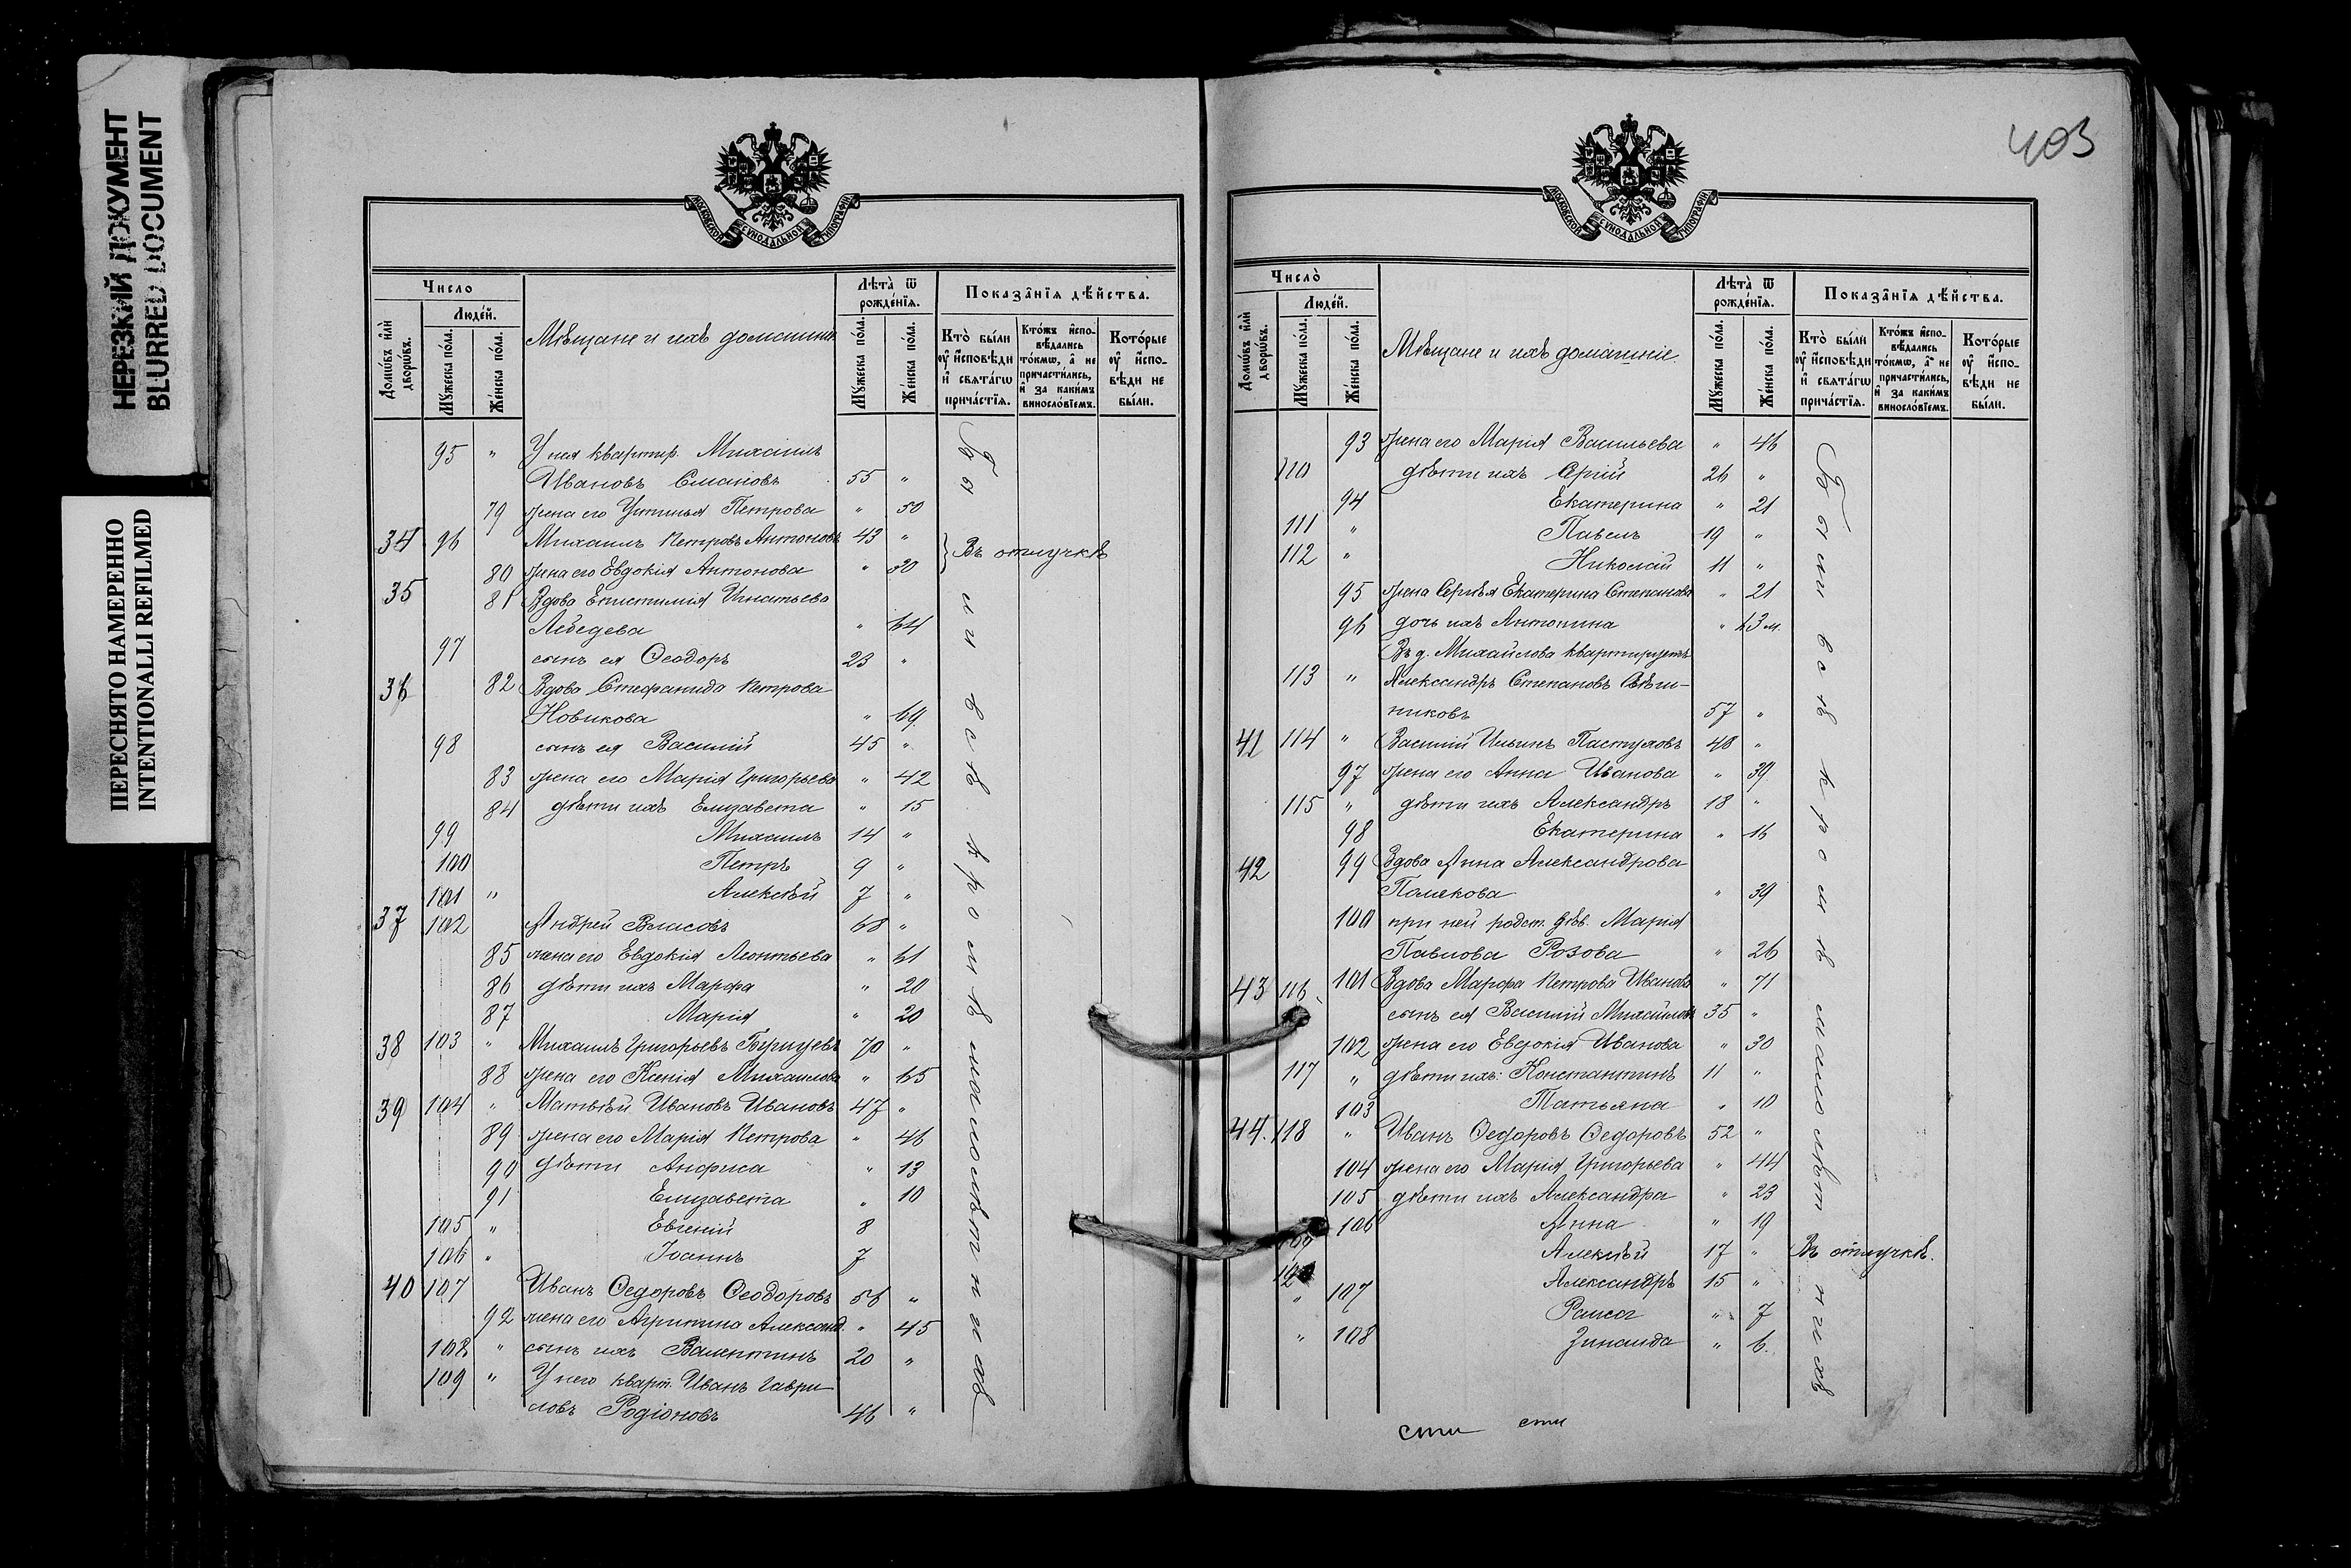 НЕРЕЗКИЙ ДОКУМЕНТ
BLURRED DOCUMENT
ПЕРЕСНЯТО НАМЕРЕННО
INTENTIONALLI REFILMED
МОСКОВСКОЙ СѴНОДАЛЬНОЙ ТИПОГРАФІИ
Число
Людей.
Домѡвъ или дворѡвъ.
Мꙋжеска пола.
Женска пола.
Мѣщане и ихъ домашніе
Лѣта ѿ рожденїѧ.
Мꙋжеска пола.
Женска пола.
Показанїѧ дѣйства.
Кто были
оу исповѣди
и свѧтагѡ
причастїѧ.
Ктожъ испо-
вѣдались
токмѡ, а не
причастились,
и за какимъ
винословїемъ.
Которые
оу испо-
вѣди не
были.
95 " У нея квартир. Михаилъ
Ивановъ 55 "
79 жена его Устинья Петрова " 50
34 96 Михаилъ Петровъ Антоновъ 43 " Въ отлучкѣ
80 жена его Евдокія Антонова " 30
35 81 Вдова Епистимія Игнатьева
Лебедева " 64
97 сынъ ея Ѳеодоръ 23 "
36 82 Вдова Стефанида Петрова
Новикова " 69
98 сынъ ея Василій 45 "
83 жена его Марія Григорьева " 42
84 дѣти ихъ Елизавета " 15
99 Михаилъ 14 "
100 Петръ 9 "
101 " Алексѣй 7 "
37 102 Андрей Власовъ 68 "
85 жена его Евдокія Леонтьева " 61
86 дѣти ихъ Марфа " 20
87 Марія " 20
38 103 " Михаилъ Григорьевъ 70 "
88 жена его Ксенія Михаилова " 65
39 104 " Матвѣй Ивановъ Ивановъ 47 "
89 жена его Марія Петрова " 46
90 дѣти Анфиса " 13
91 Елизавета " 10
105 " Евгеній 8
106 " Іоаннъ 7
40 107 Иванъ Ѳедоровъ Ѳеодоровъ 56 "
92 жена его Агрипина Александ. " 45
108 " сынъ ихъ Валентинъ 20 "
109 " У него кварт. Иванъ Гаври
ловъ Родіоновъ 46 "
Были всѣ кромѣ малолѣтнихъ
403
МОСКОВСКОЙ СѴНОДАЛЬНОЙ ТИПОГРАФІИ
Число
Людей.
Домѡвъ или дворѡвъ.
Мꙋжеска пола.
Женска пола.
Мѣщане и ихъ домашніе
Лѣта ѿ рожденїѧ.
Мꙋжеска пола.
Женска пола.
Показанїѧ дѣйства.
Кто были
оу исповѣди
и свѧтагѡ
причастїѧ.
Ктожъ испо-
вѣдались
токмѡ, а не
причастились,
и за какимъ
винословїемъ.
Которые
оу испо-
вѣди не
были.
93 жена его Марія Васильева " 46
110 дѣти ихъ Сергій 26 "
94 Екатерина " 21
111 " Павелъ 19 "
112 " Николай 11 "
95 жена Сергѣя Екатерина Степанова " 21
96 дочь ихъ Антонина " 3 м.
Въ д. Михайлова квартируетъ
113 " Александръ Степановъ
никовъ 57 "
41 114 " Василій Ильинъ Пастуховъ 48 "
97 жена его Анна Иванова " 39
115 " дѣти ихъ Александръ 18 "
98 Екатерина " 16
42 99 Вдова Анна Александрова
Полякова " 39
100 при ней родст. дѣв. Марія
Павлова Розова " 26
43 116 101 Вдова Марфа Петрова Иванова " 71
сынъ ея Василій Михайловъ 35 "
102 жена его Евдокія Иванова " 30
117 " дѣти ихъ: Константинъ 11 "
103 Татьяна " 10
44. 118 " Иванъ Ѳедоровъ Ѳедоровъ 52 "
104 жена его Марія Григорьева " 44
105 дѣти ихъ Александра " 23
106 Анна " 19
Алексѣй 17 " Въ отлучкѣ.
Александръ 15 "
" 107 Раиса " 7
" 108 Зинаида " 6.
Были всѣ кромѣ малолѣтнихъ
сти сти